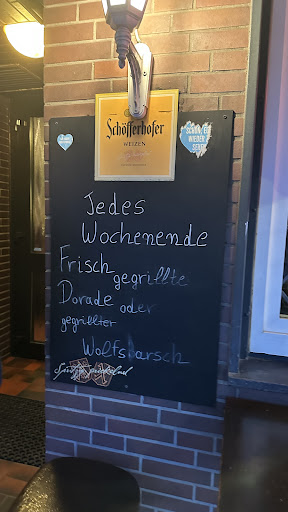 Schöfferhofer
WEIZEN
SCHÖN,
WIEDER
Jedes
Wochenende
Frisch gegrillte
Dorade oder
gegrillter
Wolfsbarsch